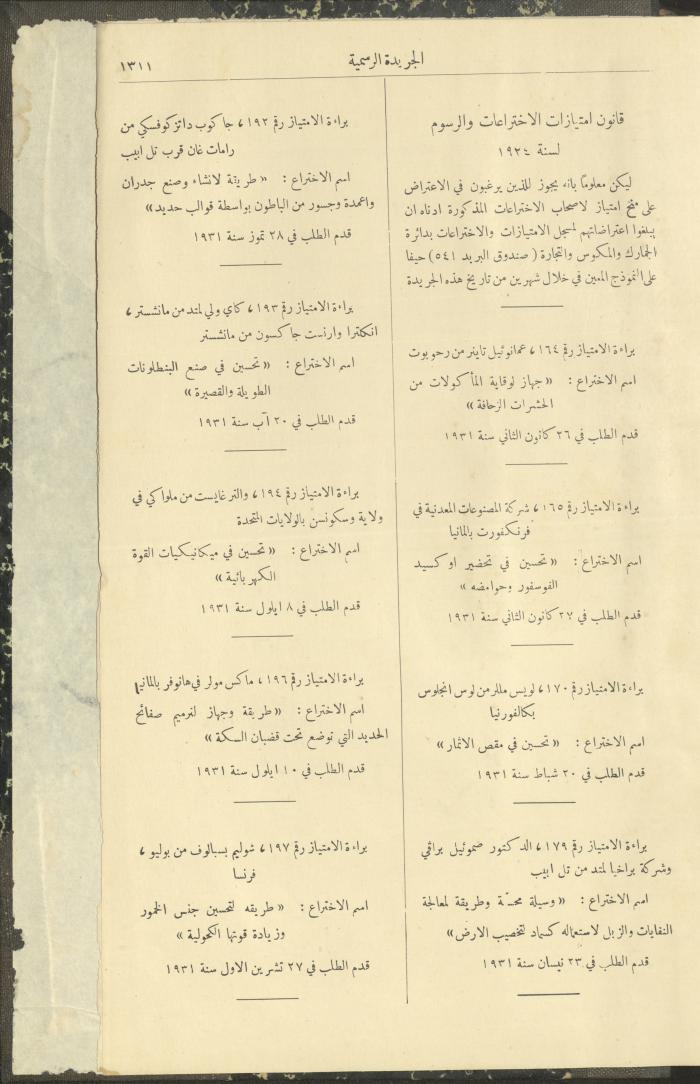 الجريدة الرسمية
١٣١١
قانون امتيازات الاختراعات والرسوم
لسنة ١٩٢٤
ليكن معلوماً بانه يجوز للذين يرغبون في الاعتراض
على منح امتياز لاصحاب الاختراعات المذكورة ادناه ان
يبلغوا اعتراضاتهم لمسجل الامتيازات والاختراعات بدائرة
الجمارك والمكوس والتجارة ( صندوق البريد ٥٤١ ) حيفا
على النموذج المعين في خلال شهرين من تاريخ هذه الجريدة
براءة الامتياز رقم ١٦٤ ، عمانوئيل تاينر من رحوبوت
اسم الاختراع : « جهاز لوقاية المأكولات من
الحشرات الزحافة »
قدم الطلب في ٢٦ كانون الثاني سنة ١٩٣١
براءة الامتياز رقم ١٦٥ ، شركة المصنوعات المعدنية في
فرنكفورت بالمانيا
اسم الاختراع : « تحسين في تحضير اوكسيد
الفوسفور وحوامضه »
قدم الطلب في ٢٧ كانون الثاني سنة ١٩٣١
براءة الامتياز رقم ١٧٠ ، لويس مللر من لوس انجلوس
بكالفورنيا
اسم الاختراع : « تحسين في مقص الاثمار »
قدم الطلب في ٢٠ شباط سنة ١٩٣١
براءة الامتياز رقم ١٧٩ ، الدكتور صموئيل براقي
وشركة براخيا لمتد من تل ابيب
اسم الاختراع : « وسيلة محسنة وطريقة لمعالجة
النفايات والزبل لاستعماله كسماد لتخصيب الارض »
قدم الطلب في ٢٣ نيسان سنة ١٩٣١
براءة الامتياز رقم ١٩٢ ، جاكوب داتزكوفسكي من
رامات غان قرب تل ابيب
اسم الاختراع : « طريقة لانشاء وصنع جدران
واعمدة وجسور من الباطون بواسطة قوالب حديد »
قدم الطلب في ٢٨ تموز سنة ١٩٣١
براءة الامتياز رقم ١٩٣ ، كاي ولي لمتد من مانشستر ،
انكلترا وارنست جاكسون من مانشستر
اسم الاختراع : « تحسين في صنع البنطلونات
الطويلة والقصيرة »
قدم الطلب في ٢٠ آب سنة ١٩٣١
براءة الامتياز رقم ١٩٤ ، والتر غايست من ملواكي في
ولاية وسكونسن بالولايات المتحدة
اسم الاختراع : « تحسين في ميكانيكيات القوة
الكهربائية »
قدم الطلب في ٨ ايلول سنة ١٩٣١
براءة الامتياز رقم ١٩٦ ، ماكس مولر في هانوفر بالمانيا
اسم الاختراع : « طريقة وجهاز لترميم صفائح
الحديد التي توضع تحت قضبان السكة »
قدم الطلب في ١٠ ايلول سنة ١٩٣١
براءة الامتياز رقم ١٩٧ ، شوليم بسبالوف من بوليو ،
فرنسا
اسم الاختراع : « طريقه لتحسين جنس الخمور
وزيادة قوتها الكحولية »
قدم الطلب في ٢٧ تشرين الاول سنة ١٩٣١